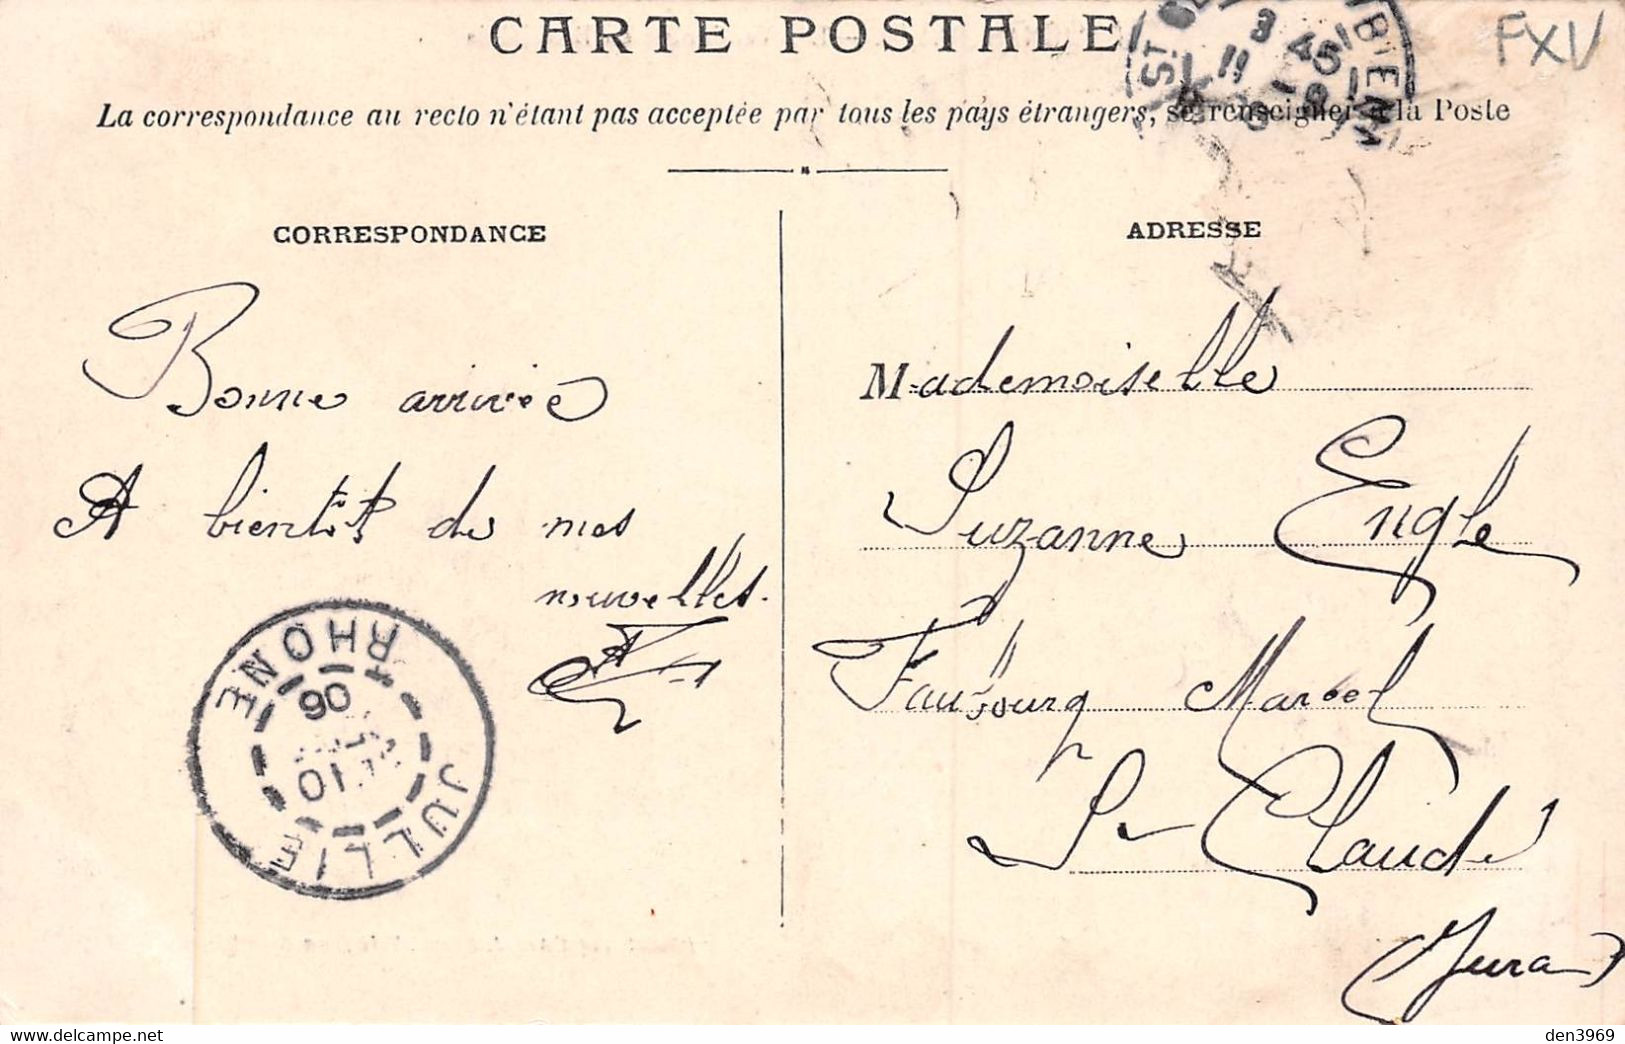 CARTE POSTALE
FXV
La correspondance au recto n'étant pas acceptée par tous les pays étrangers, se renseigner à la Poste
CORRESPONDANCE
Bonne arrivée
A bientôt de mes
nouvelles.
JULLIÉ
RHONE
06
ADRESSE
Mademoiselle
Suzanne Engle
Faubourg Marcel
St Claude
(Jura)
den3969